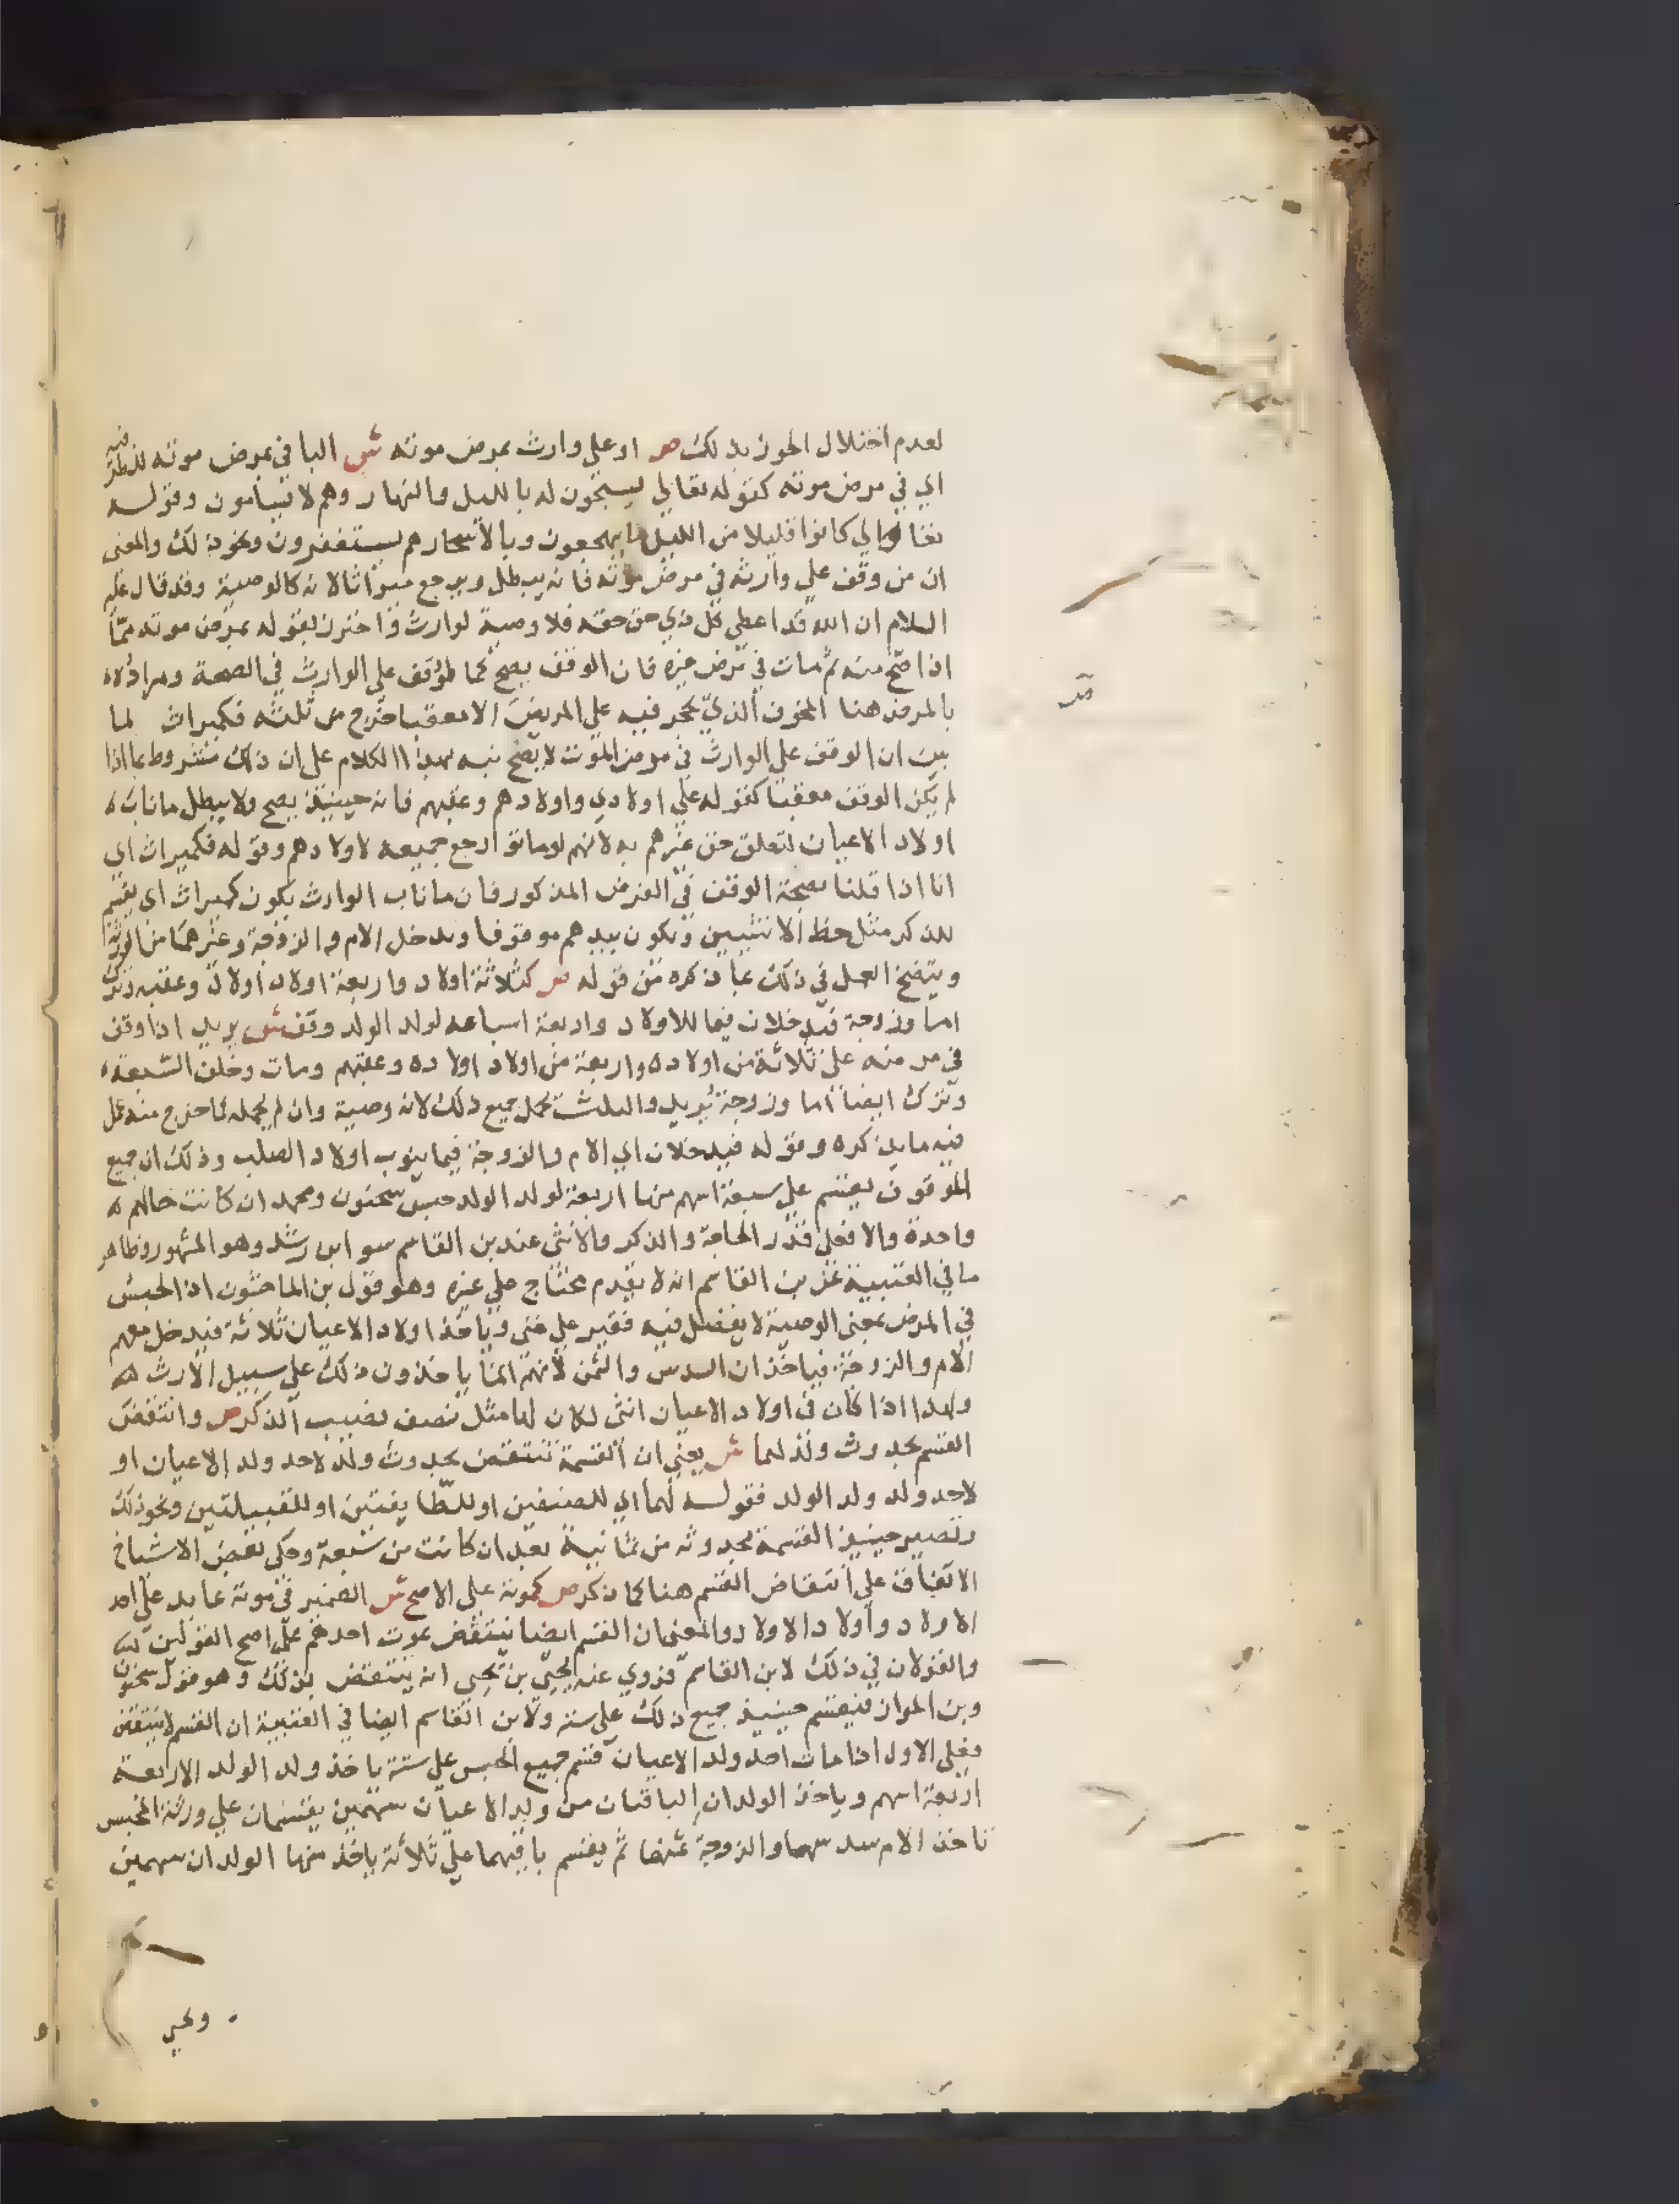 لعدم اختلال الحوز بذلك ص او على وارث بمرض موته ش البا في بمرض موته للظرفية
اي في مرض موته كقوله تعالى يسبحون له بالليل والنهار وهم لا يسأمون وقوله
تعالى كانوا قليلا من الليل ما يهجعون وبالاسحار هم يستغفرون ونحو ذلك والمعنى
ان من وقف على وارثه في مرض موته فانه يبطل ويرجع ميراثا لانه كالوصية وقد قال عليه
السلام ان الله قد اعطى كل ذي حق حقه فلا وصية لوارث واحترز بقوله بمرض موته مما
اذا صح منه ثم مات في مرض غيره فان الوقف يصح كما لو وقف على الوارث في الصحة ومراده
بالمرض هنا المخوف الذي يحجر فيه على المريض الا معقبا خرج من ثلثه فكميراث لما
بين ان الوقف على الوارث في مرض الموت لا يصح نبه بهذا الكلام على ان ذلك مشروط بما اذا
لم يكن الوقف معقبا كقوله على اولادي واولادهم وعقبهم فانه حينيذ يصح ولا يبطل ما ناب
اولاد الاعيان لتعلق حق غيرهم به لانهم لو ماتوا رجع جميعه لاولادهم وقوله فكميراث اي
انا اذا قلنا بصحة الوقف في الفرض المذكور فان ما ناب الوارث يكون كميراث اي يقسم
للذكر مثل حظ الانثيين ويكون بيدهم موقوفا ويدخل الام والزوجة وغيرهما من الورثة
ويتضح العمل في ذلك بما ذكره من قوله ص كثلاثة اولاد واربعة اولاد اولاد وعقبه وترك
اما وزوجة فيدخلان فيما للاولاد واربعة اسباعه لولد الولد وقف ش يريد اذا وقف
في مرضه على ثلاثة من اولاده واربعة من اولاد اولاده وعقبهم ومات وخلف السبعة
وترك ايضا اما وزوجة يريد والثلث يحمل جميع ذلك لانه وصية وان لم يحمله فما خرج منه عمل
فيه ما يذكره وقوله فيدخلان اي الام والزوجة فيما ينوب اولاد الصلب وذلك ان جميع
الموقوف يقسم على سبعة اسهم منها اربعة لولد الولد حبس سحنون ومحمد ان كانت حالهم
واحدة والا فعلى قدر الحاجة والذكر والانثى عند بن القاسم سوا ابن رشد وهو المشهور وظاهر
ما في العتبية عن بن القاسم انه لا يقدم محتاج على غيره وهو قول بن الماجشون اذ الحبس
في المرض بمعنى الوصية لا يفضل فيه فقير على غنى وياخذ اولاد الاعيان ثلاثة فيدخل معهم
الام والزوجة فياخذان السدس والثمن لانهم انما ياخذون ذلك على سبيل الارث
ولهذا اذا كان في اولاد الاعيان انثى لكان لها مثل نصف نصيب الذكر ص وانتقض
القسم بحدوث ولد لهما ش يعني ان القسمة تنتقض بحدوث ولد لاحد ولد الاعيان او
لاحد ولد ولد الولد فقوله لهما اي للصنفين او للطايفتين او للقبيلتين ونحو ذلك
وتصير حينيذ القسمة بحدوثه من ثمانية بعد ان كانت من سبعة وحكى بعض الاشياخ
الاتفاق على انتقاض القسم هنا كما ذكر ص كموته على الاصح ش الضمير في موته عايد على احد
الاولاد واولاد الاولاد والمعنى ان القسم ايضا ينتقض بموت احدهم على اصح القولين
والقولان في ذلك لابن القاسم فروي عنه يحيى بن يحيى انه ينتقض بذلك وهو قول سحنون
وبن المواز فيقسم حينيذ جميع ذلك على ستة ولابن القاسم ايضا في العتبية ان القسم لا ينتقض
فعلى الاول اذا مات احد ولد الاعيان قسم جميع الحبس على ستة ياخذ ولد الولد الاربعة
اربعة اسهم وياخذ الولدان الباقيان من ولد الاعيان سهمين يقتسمان على ورثة المحبس
تاخذ الام سدسها والزوجة ثمنها ثم يقسم باقيهما على ثلاثة ياخذ منها الولدان سهمين